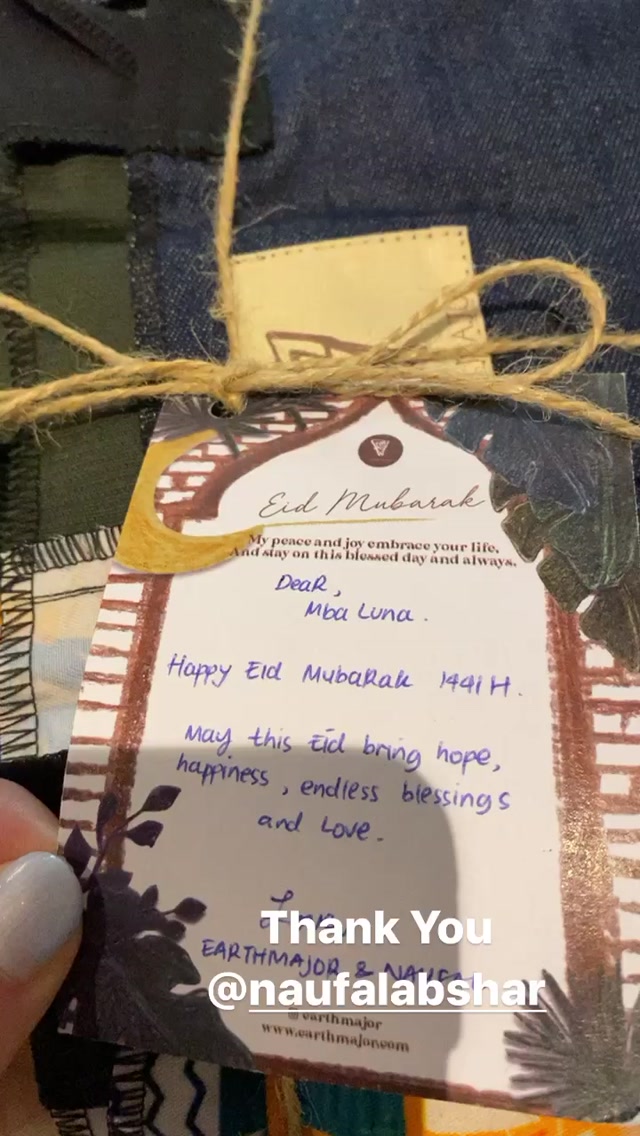 Eid Mubarak
My peace and joy embrace your life,
And stay on this blessed day and always.
Dear,
Mba Luna.
Happy Eid Mubarak 1441 H.
May this Eid bring hope,
happiness, endless blessings
and Love.
Thank You
EARTHMAJOR &
@naufalabshar
@earthmajor
www.earthmajor.com